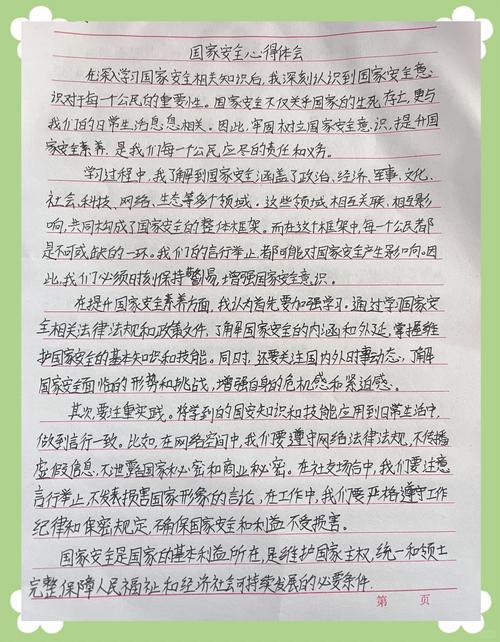 国家安全心得体会
在深入学习国家安全相关知识后，我深刻认识到国家安全意
识对于每一个公民的重要性。国家安全不仅关乎国家的生死存亡，更与
我们的日常生活息息相关。因此，牢固树立国家安全意识，提升国
家安全素养，是我们每一个公民应尽的责任和义务。
学习过程中，我了解到国家安全涵盖了政治、经济、军事、文化、
社会、科技、网络、生态等多个领域。这些领域相互关联、相互影
响，共同构成了国家安全的整体框架。而在这个框架中，每一个公民都
是不可或缺的一环。我们的言行举止，都可能对国家安全产生影响。因
此，我们必须时刻保持警惕，增强国家安全意识。
在提升国家安全素养方面，我认为首先要加强学习。通过学习国家安
全相关法律法规和政策文件，了解国家安全的内涵和外延，掌握维
护国家安全的基本知识和技能。同时，还要关注国内外时事动态，了解
国家安全面临的形势和挑战，增强自身的危机感和紧迫感。
其次，要注重实践。将学到的国安知识和技能应用到日常生活中，
做到言行一致。比如，在网络空间中，我们要遵守网络法律法规，不传播
虚假信息，不泄露国家秘密和商业秘密。在社交场合中，我们要注意
言行举止，不发表损害国家形象的言论，在工作中，我们要严格遵守工作
纪律和保密规定，确保国家安全和利益不受损害。
国家安全是国家的基本利益所在，是维护国家主权，统一和领土
完整，保障人民福祉和经济社会可持续发展的必要条件.
第 页